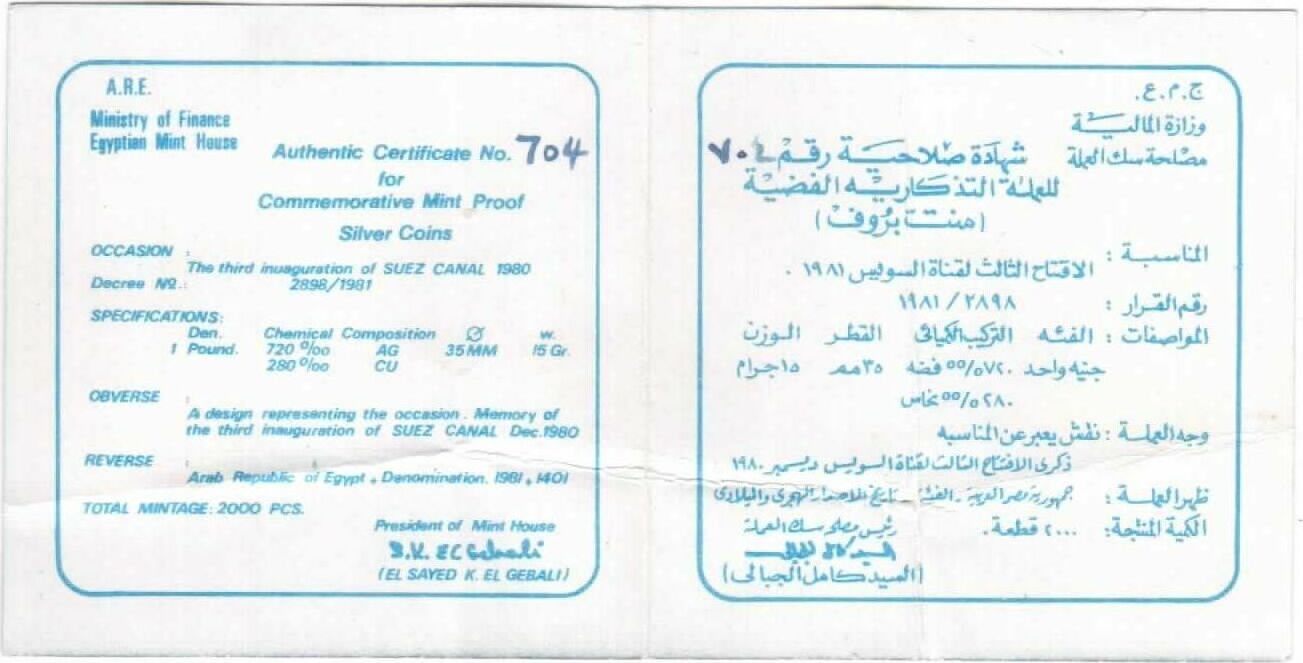 A.R.E.
Ministry of Finance
Egyptian Mint House
Authentic Certificate No. 704
for
Commemorative Mint Proof
Silver Coins
OCCASION :
The third inuaguration of SUEZ CANAL 1980
Decree Nº.: 2898/1981
SPECIFICATIONS:
Den. Chemical Composition Ø w.
1 Pound. 720 º/oo AG 35MM 15 Gr.
280 º/oo CU
OBVERSE :
A design representing the occasion . Memory of
the third inauguration of SUEZ CANAL Dec.1980
REVERSE :
Arab Republic of Egypt + Denomination. 1981 + 1401
TOTAL MINTAGE: 2000 PCS.
President of Mint House
S.K. El Gebali
(EL SAYED K. EL GEBALI)
ج.م.ع.
وزارة المالية
مصلحة سك العملة
شهادة صلاحية رقم ٧٠٤
للعملة التذكارية الفضية
(منت بروف)
المناسبة : الافتتاح الثالث لقناة السويس ١٩٨١ .
رقم القرار : ٢٨٩٨ / ١٩٨١
المواصفات : الفئه التركيب الكيمائى القطر الوزن
جنيه واحد ٧٢٠ ٥/٥٥ فضه ٣٥مم ١٥جرام
٢٨٠ ٥/٥٥ نحاس
وجه العملة : نقش يعبر عن المناسبه
ذكرى الافتتاح الثالث لقناة السويس ديسمبر ١٩٨٠
ظهر العملة : جمهورية مصر العربية - الفئة - تاريخ الاصدار الهجرى والميلادى
الكمية المنتجة: ٢٠٠٠ قطعة.
رئيس مصلحة سك العملة
(السيد كامل الجبالى)